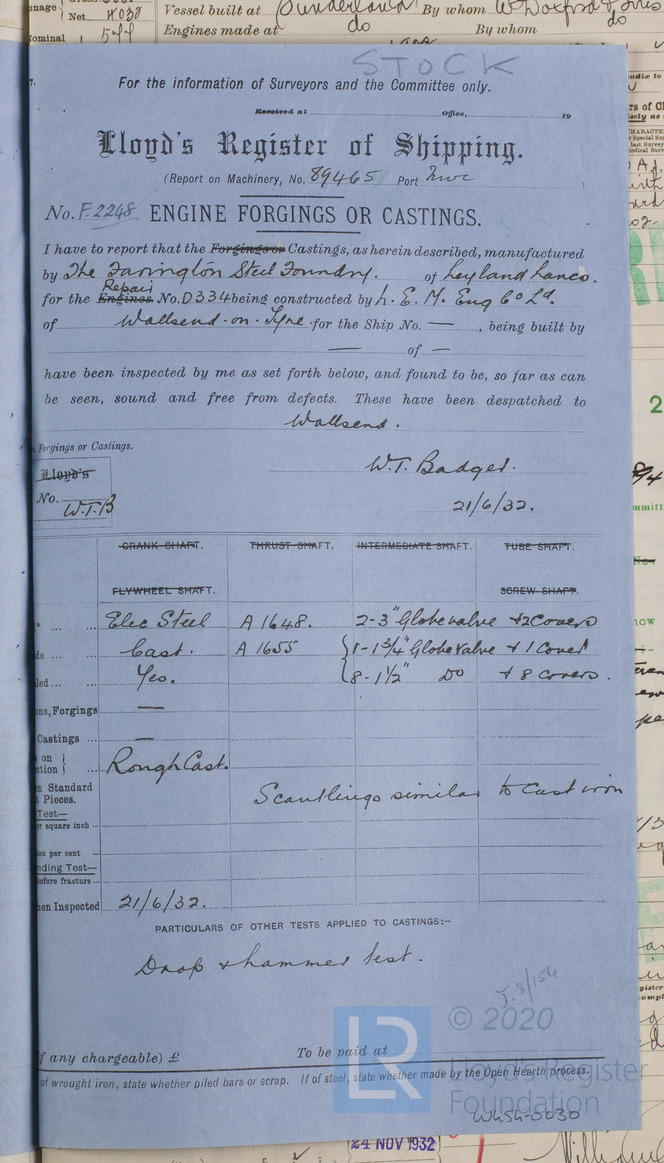 Net 4030
Vessel built at Sunderland By whom W Doxford & Sons
Engines made at do By whom do
Nominal
STOCK
For the information of Surveyors and the Committee only.
Received at Office, 19
Lloyd's Register of Shipping.
(Report on Machinery, No. 89465 Port Nwc
No. F.2248 ENGINE FORGINGS OR CASTINGS.
I have to report that the Forgings or Castings, as herein described, manufactured
by The Farington Steel Foundry. of Leyland Lancs.
Repair
for the Engines No. D334 being constructed by L. E. M. Eng Co Ld.
of Wallsend-on-Tyne for the Ship No. — , being built by
— of —
have been inspected by me as set forth below, and found to be, so far as can
be seen, sound and free from defects. These have been despatched to
Wallsend.
Forgings or Castings.
W.T. Badger.
Lloyd's
No. W.T.B
21/6/32.
CRANK SHAFT. THRUST SHAFT. INTERMEDIATE SHAFT. TUBE SHAFT.
FLYWHEEL SHAFT. SCREW SHAFT.
Elec Steel A 1648. 2-3" Globe valve + 2 Covers
Cast. A 1655 1-1 3/4" Globe valve + 1 Cover
Yes. 8-1 1/2" Do + 8 covers.
ons, Forgings —
Castings ... —
on
ction Rough Cast.
n Standard
t Pieces. Scantlings similar to Cast iron
Test—
er square inch
on per cent
nding Test—
before fracture
hen Inspected 21/6/32.
PARTICULARS OF OTHER TESTS APPLIED TO CASTINGS:—
Drop & hammer test.
J. 8/154
© 2020
LR
Lloyd's Register
Foundation
f any chargeable) £ To be paid at
of wrought iron, state whether piled bars or scrap. If of steel, state whether made by the Open Hearth process.
W454-0030
24 NOV 1932